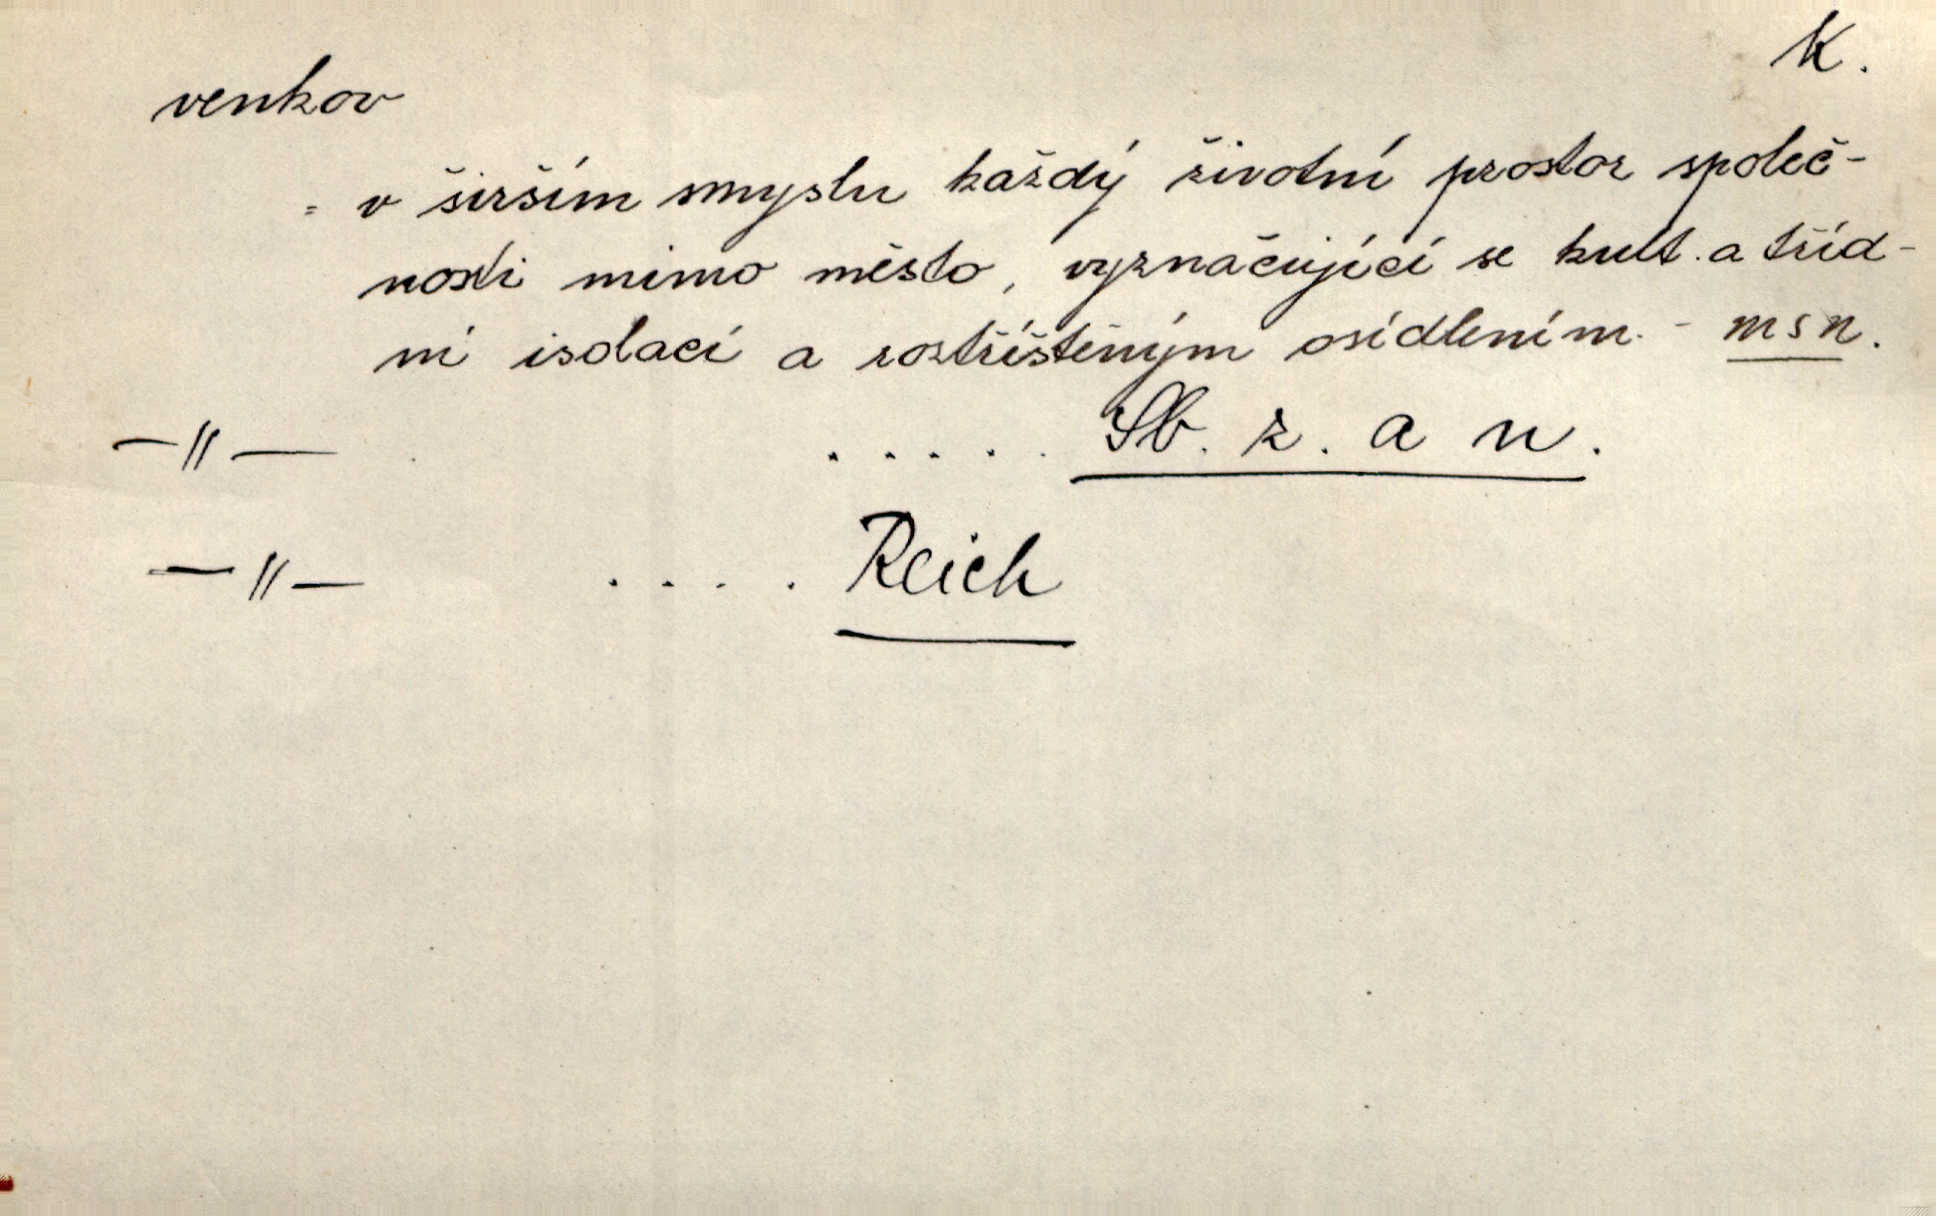 K.
venkov
= v širším smyslu každý životní prostor společ-
nosti mimo město, vyznačující se kult. a tříd-
ní isolací a roztříštěným osídlením. - msn.
—〃— ..... Sb. z. a n.
—〃— .... Reich